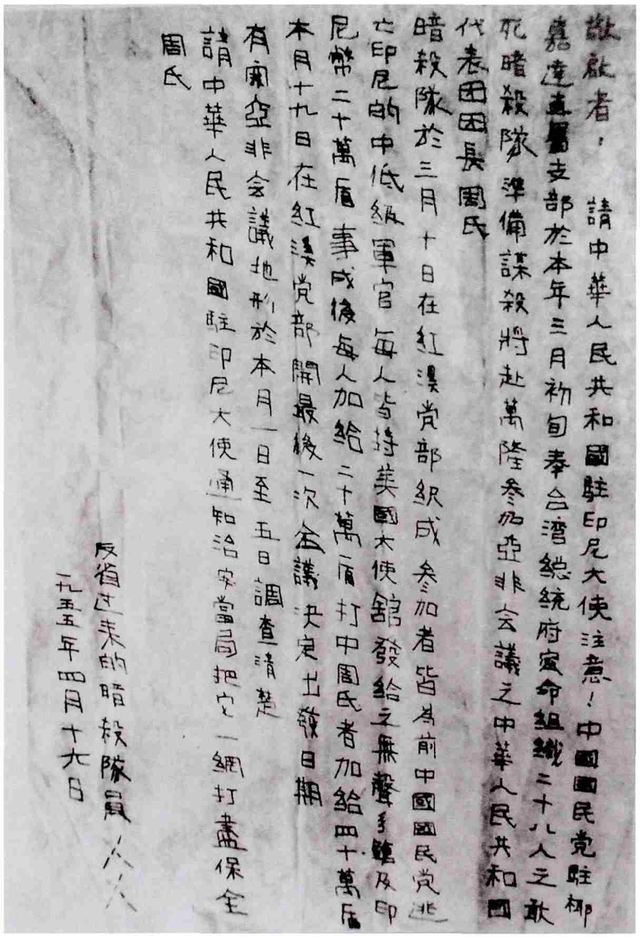 敬啟者: 請中華人民共和國駐印尼大使注意!中國國民党駐椰
嘉達直屬支部於本年三月初旬奉台湾總統府密命組織二十八人之敢
死暗殺隊 準備謀殺將赴萬隆參加亞非会議之中華人民共和國
代表团团長周氏
暗殺隊於三月十日在紅溪党部織成 参加者皆為前中國國民党逃
亡印尼的中低級軍官 每人皆持美國大使舘發給之無聲手鎗及印
尼幣二十萬盾 事成後每人加給二十萬盾 打中周氏者加給四十萬盾
本月十九日在紅溪党部開最後一次会議 決定出發日期
有関亞非会議地形於本月一日至五日調查清楚
請中華人民共和國駐印尼大使通知治安當局把它一網打盡保全
周氏
反省过来的暗殺隊員
一九五五年四月十六日